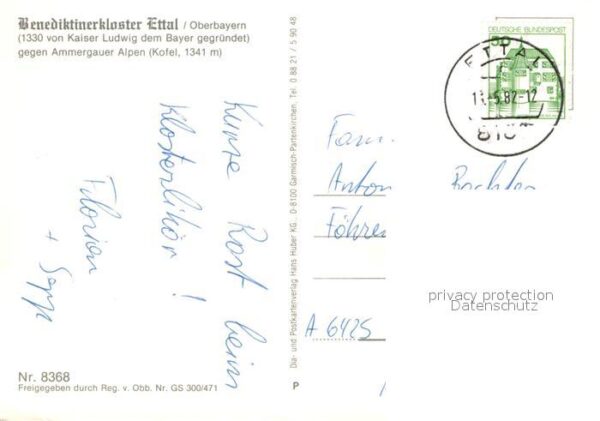 Benediktinerkloster Ettal / Oberbayern
(1330 von Kaiser Ludwig dem Bayer gegründet)
gegen Ammergauer Alpen (Kofel, 1341 m)
Kurze Rast beim
Klosterlikör !
Florian
+ Sepp
Nr. 8368
Freigegeben durch Reg. v. Obb. Nr. GS 300/471
Dia- und Postkartenverlag Hans Huber KG., D-8100 Garmisch-Partenkirchen, Tel. 0 88 21 / 5 90 48
P
DEUTSCHE BUNDESPOST
50
ETTAL
5.82-12
810
Fam.
Anton
Föhren
A 6425
privacy protection
Datenschutz